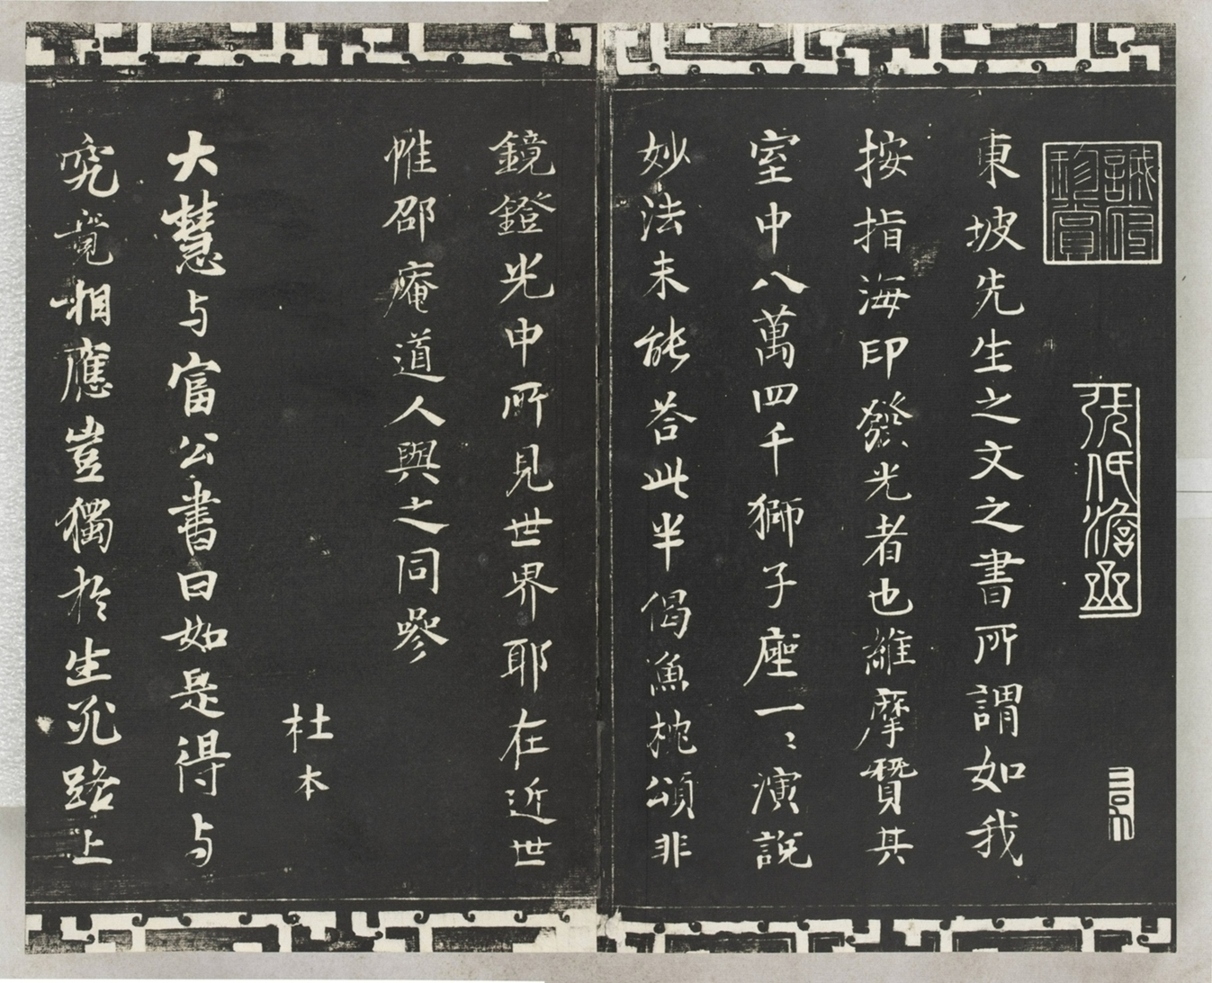 東坡先生之文之書所謂如我
按指海印發光者也維摩贊其
室中八萬四千獅子座一〻演說
妙法未能荅此半偈魚枕頌非
鏡鐙光中所見世界耶在近世
惟邵庵道人與之同參
杜本
大慧与富公書曰如是得与
究竟相應豈獨於生死路上